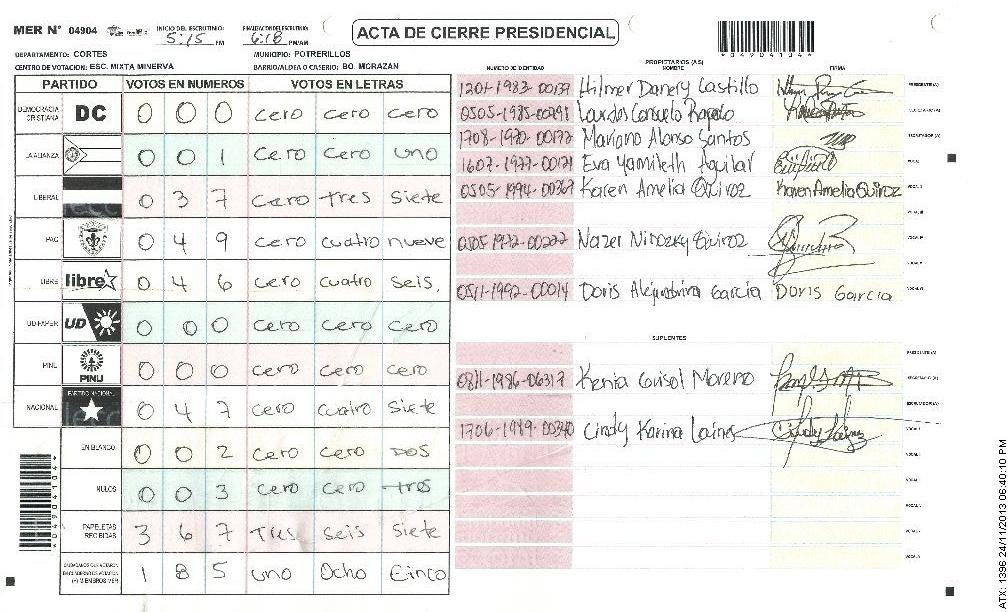 MER N° 04904 INICIO DEL ESCRUTINIO: 5:15 PM FINALIZACION DEL ESCRUTINIO: 6:18 PM/AM
ACTA DE CIERRE PRESIDENCIAL
DEPARTAMENTO: CORTES MUNICIPIO: POTRERILLOS
CENTRO DE VOTACION: ESC. MIXTA MINERVA BARRIO/ALDEA O CASERIO: BO. MORAZAN
PARTIDO VOTOS EN NUMEROS VOTOS EN LETRAS
DEMOCRACIA CRISTIANA DC 0 0 0 cero cero cero
LA ALIANZA 0 0 1 cero cero uno
LIBERAL 0 3 7 cero tres siete
PAC 0 4 9 cero cuatro nueve
LIBRE libre 0 4 6 cero cuatro seis.
UD-FAPER UD 0 0 0 cero cero cero
PINU PINU 0 0 0 cero cero cero
NACIONAL PARTIDO NACIONAL 0 4 7 cero cuatro siete
EN BLANCO 0 0 2 cero cero DOS
NULOS 0 0 3 cero cero tres
PAPELETAS RECIBIDAS 3 6 7 Tres seis siete
CIUDADANOS QUE VOTARON EN CUADERNO DE VOTACION (+) MIEMBROS MER 1 8 5 uno Ocho Cinco
PROPIETARIOS (AS)
NUMERO DE IDENTIDAD NOMBRE FIRMA
Hilmer Danery Castillo PRESIDENTE (A)
0505-1985-00291 Lourdes Consuelo SECRETARIO (A)
Mariano Alonso Santos ESCRUTADOR (A)
Eva Yamileth Aguilar VOCAL I
Karen Amelia Quiroz Karen Amelia Quiroz VOCAL II
VOCAL III
Quiroz VOCAL IV
VOCAL V
0511-1992-00014 Doris Alejandrina García Doris Garcia VOCAL VI
SUPLENTES
PRESIDENTE (A)
0811-1986-06317 Kenia Moreno SECRETARIO (A)
ESCRUTADOR (A)
1706-1989-00340 Cindy Karina Lainez VOCAL I
*0490414*
ATX: 1396 24/11/2013 06:40:10 PM